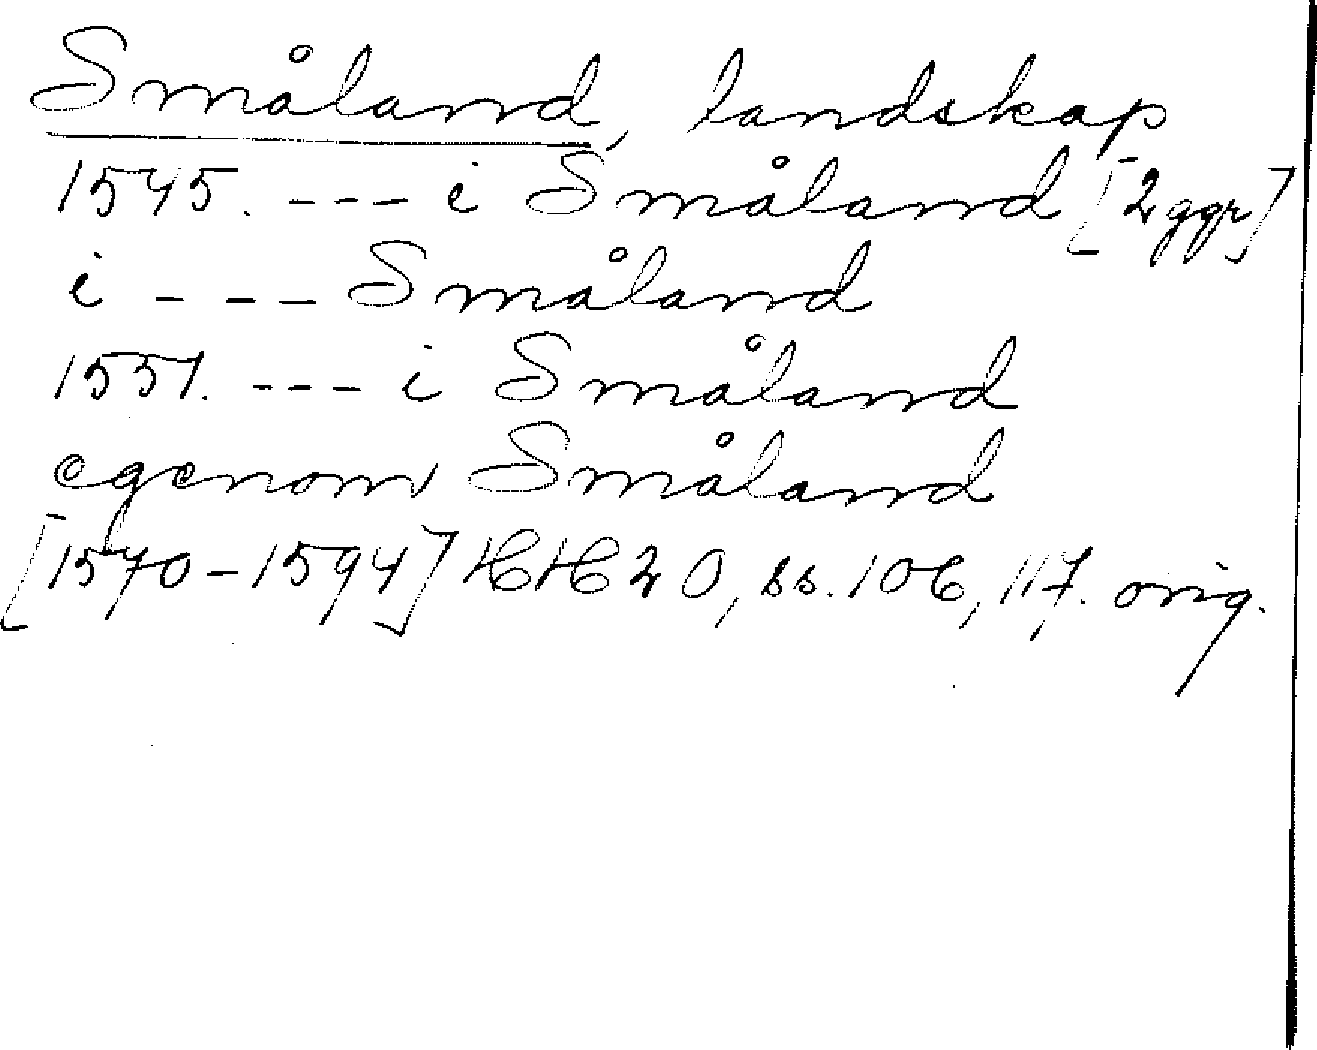 Småland, landskap
1545. --- i Småland [2 ggr]
i --- Småland
1551. --- i Småland
egenom Småland
[1570-1594] HH 20, ss. 106, 117. orig.